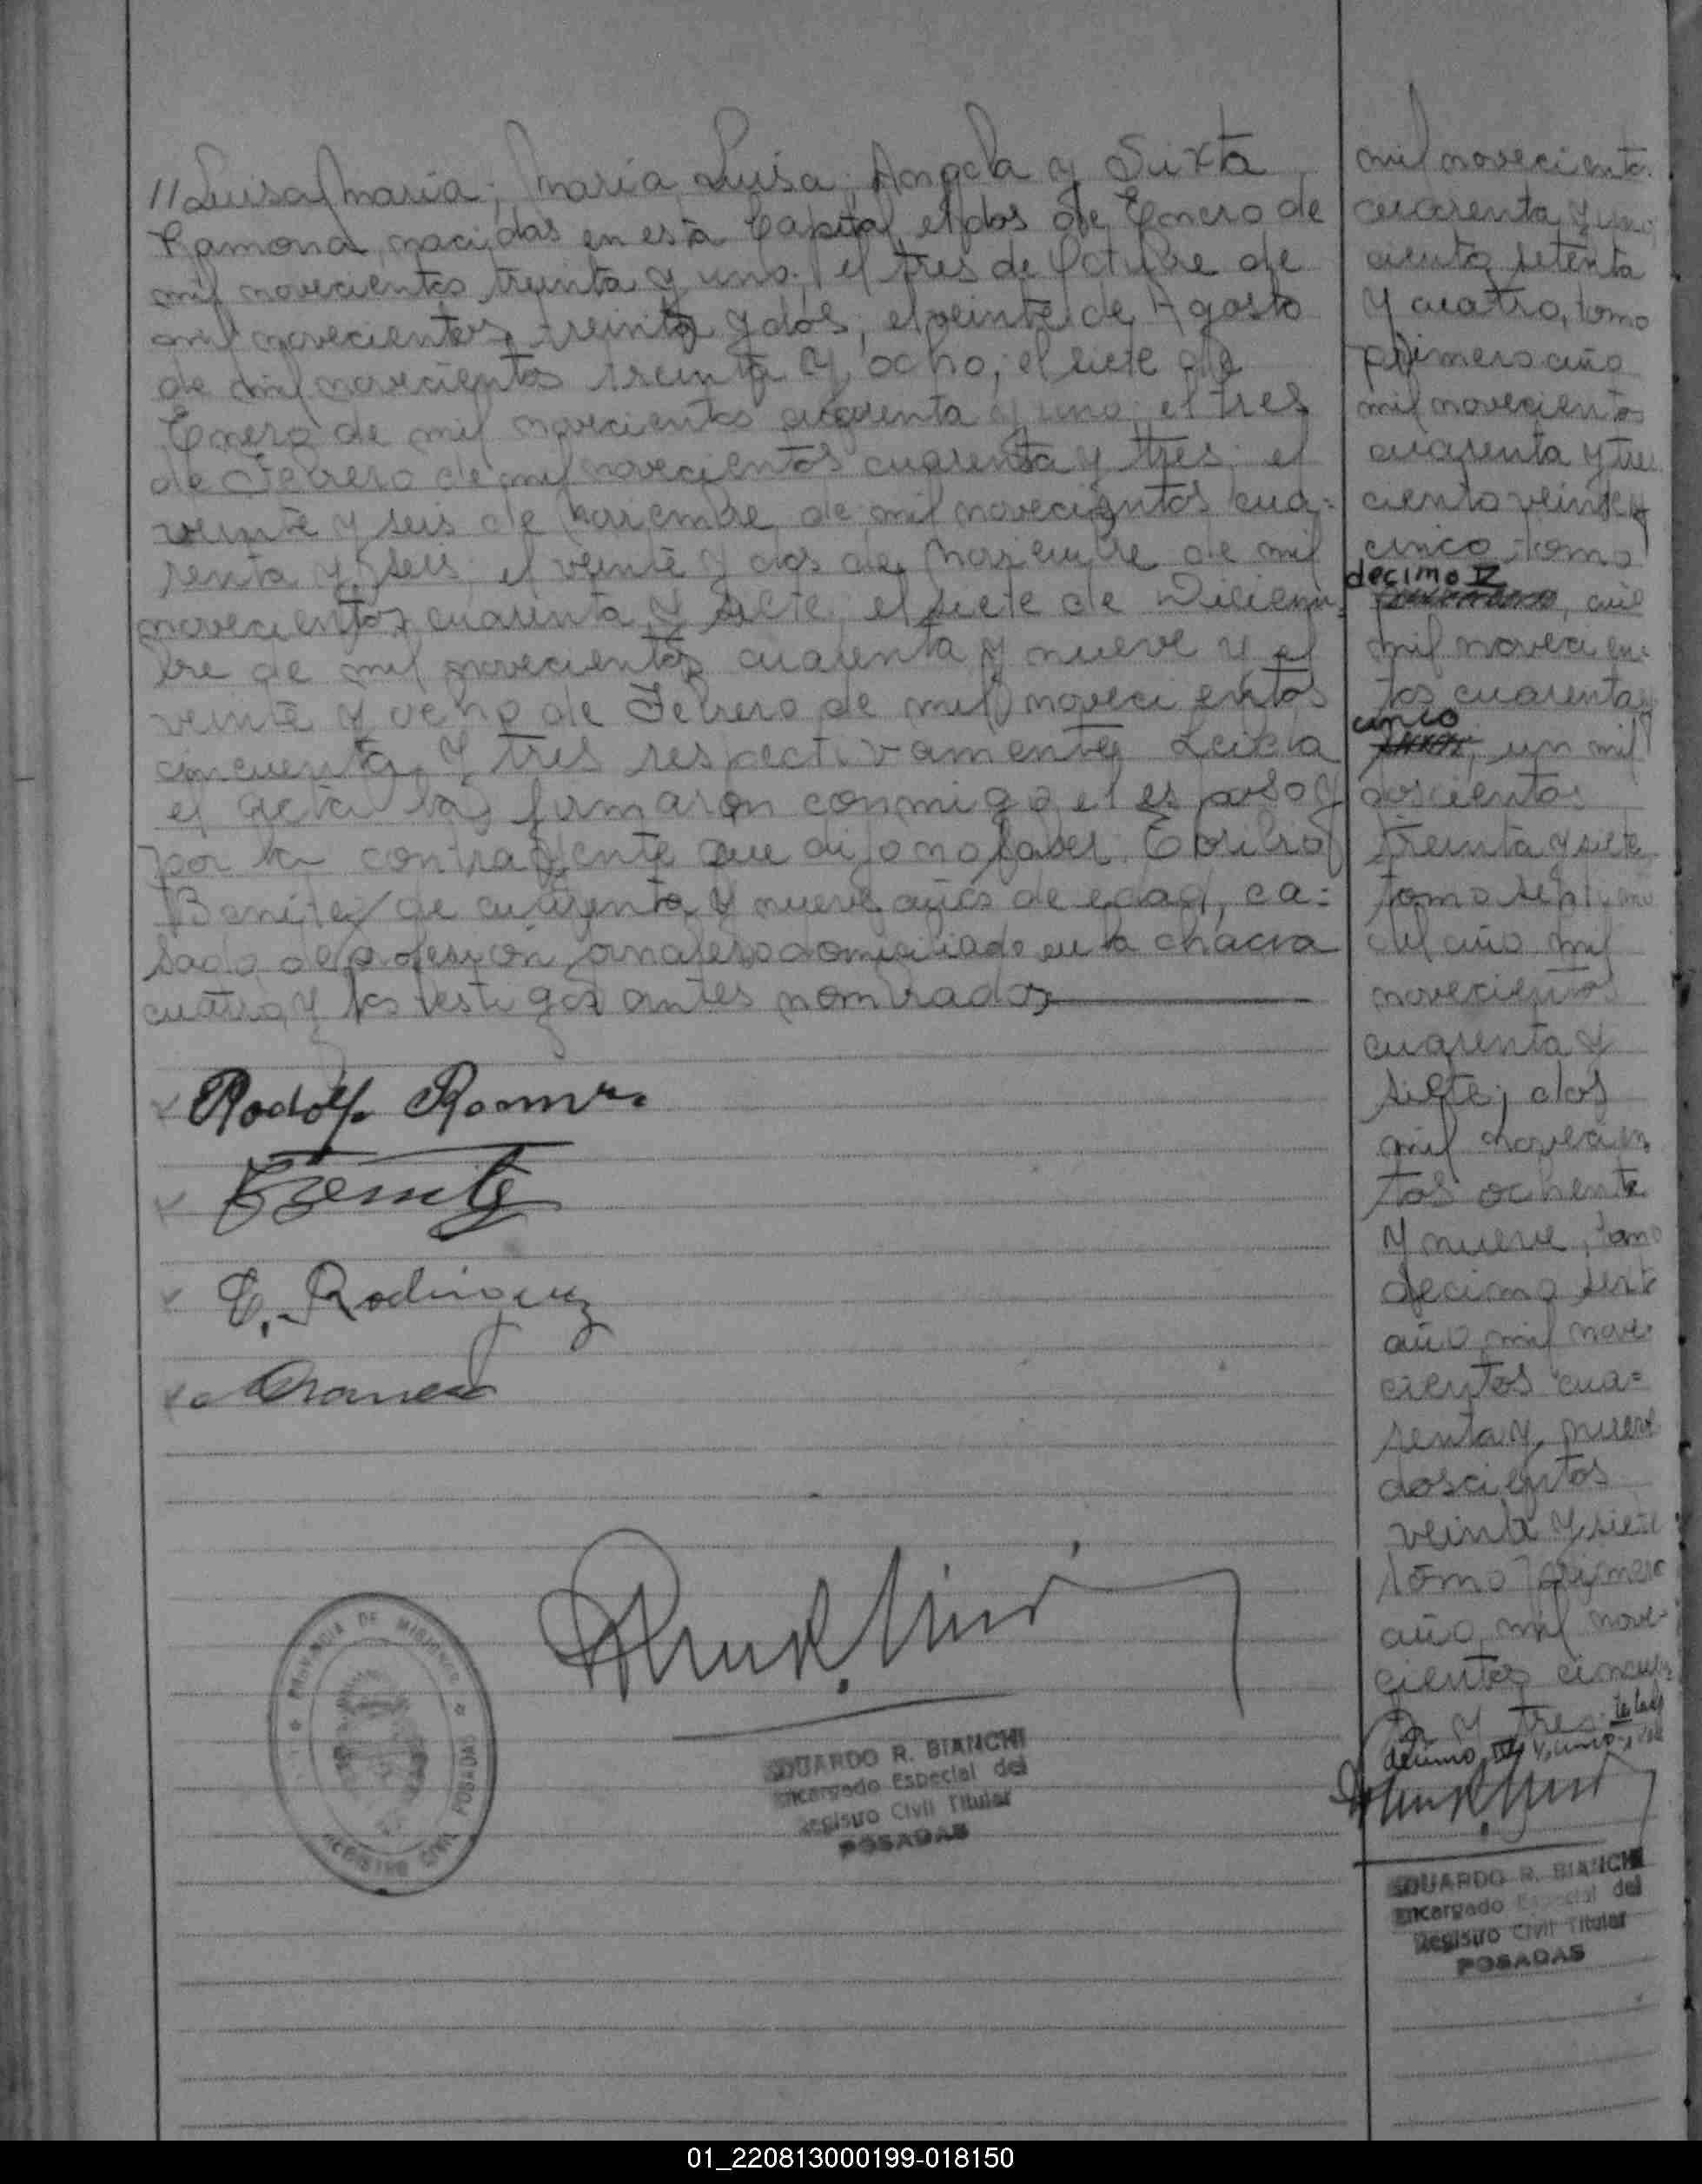 // Luisa maria; maria Luisa; Angela y Sixta
Ramona, nacidas en esta Capital el dos de Enero de
mil novecientos treinta y uno; el tres de Octubre de
mil novecientos treinta y dos; el veinte de Agosto
de mil novecientos treinta y ocho; el siete de
Enero de mil novecientos cuarenta y uno; el tres
de Febrero de mil novecientos cuarenta y tres; el
veinte y seis de Noviembre de mil novecientos cua=
renta y seis; el veinte y dos de Noviembre de mil
novecientos cuarenta y siete; el siete de Diciem=
bre de mil novecientos cuarenta y nueve y el
veinte y ocho de Febrero de mil noveci entos
cincuenta y tres respectivamente Leida
el acta la firmaron conmigo el esposo y
por la contrayente que dijo no saber
Benitez de cuarenta y nueve años de edad, ca=
sado de profesión domiciliado en la chacra
cuatro, y los testigos antes nombrados
Rodolfo
E. Rodriguez
PROVINCIA DE MISIONES
REGISTRO CIVIL POSADAS
EDUARDO R. BIANCHI
Encargado Especial del
Registro Civil Titular
POSADAS
mil noveciento
cuarenta y uno
ciento setenta
y cuatro, tomo
primero año
mil novecientos
cuarenta y tres
ciento veinte y
cinco tomo
decimo IV
, año
mil novecien
tos cuarenta y
cinco
, un mil
doscientos
treinta y siete
tomo septimo
del año mil
novecientos
cuarenta y
siete; dos
mil novecien
tos ochenta
y nueve, tomo
decimo sexto
año mil nove
cientos cua=
renta y nueve
doscientos
veinte y siete
tomo primero
año mil nove-
cientos cincuen
ta y tres.
EDUARDO R. BIANCHI
Encargado Especial del
Registro Civil Titular
POSADAS
01_220813000199-018150